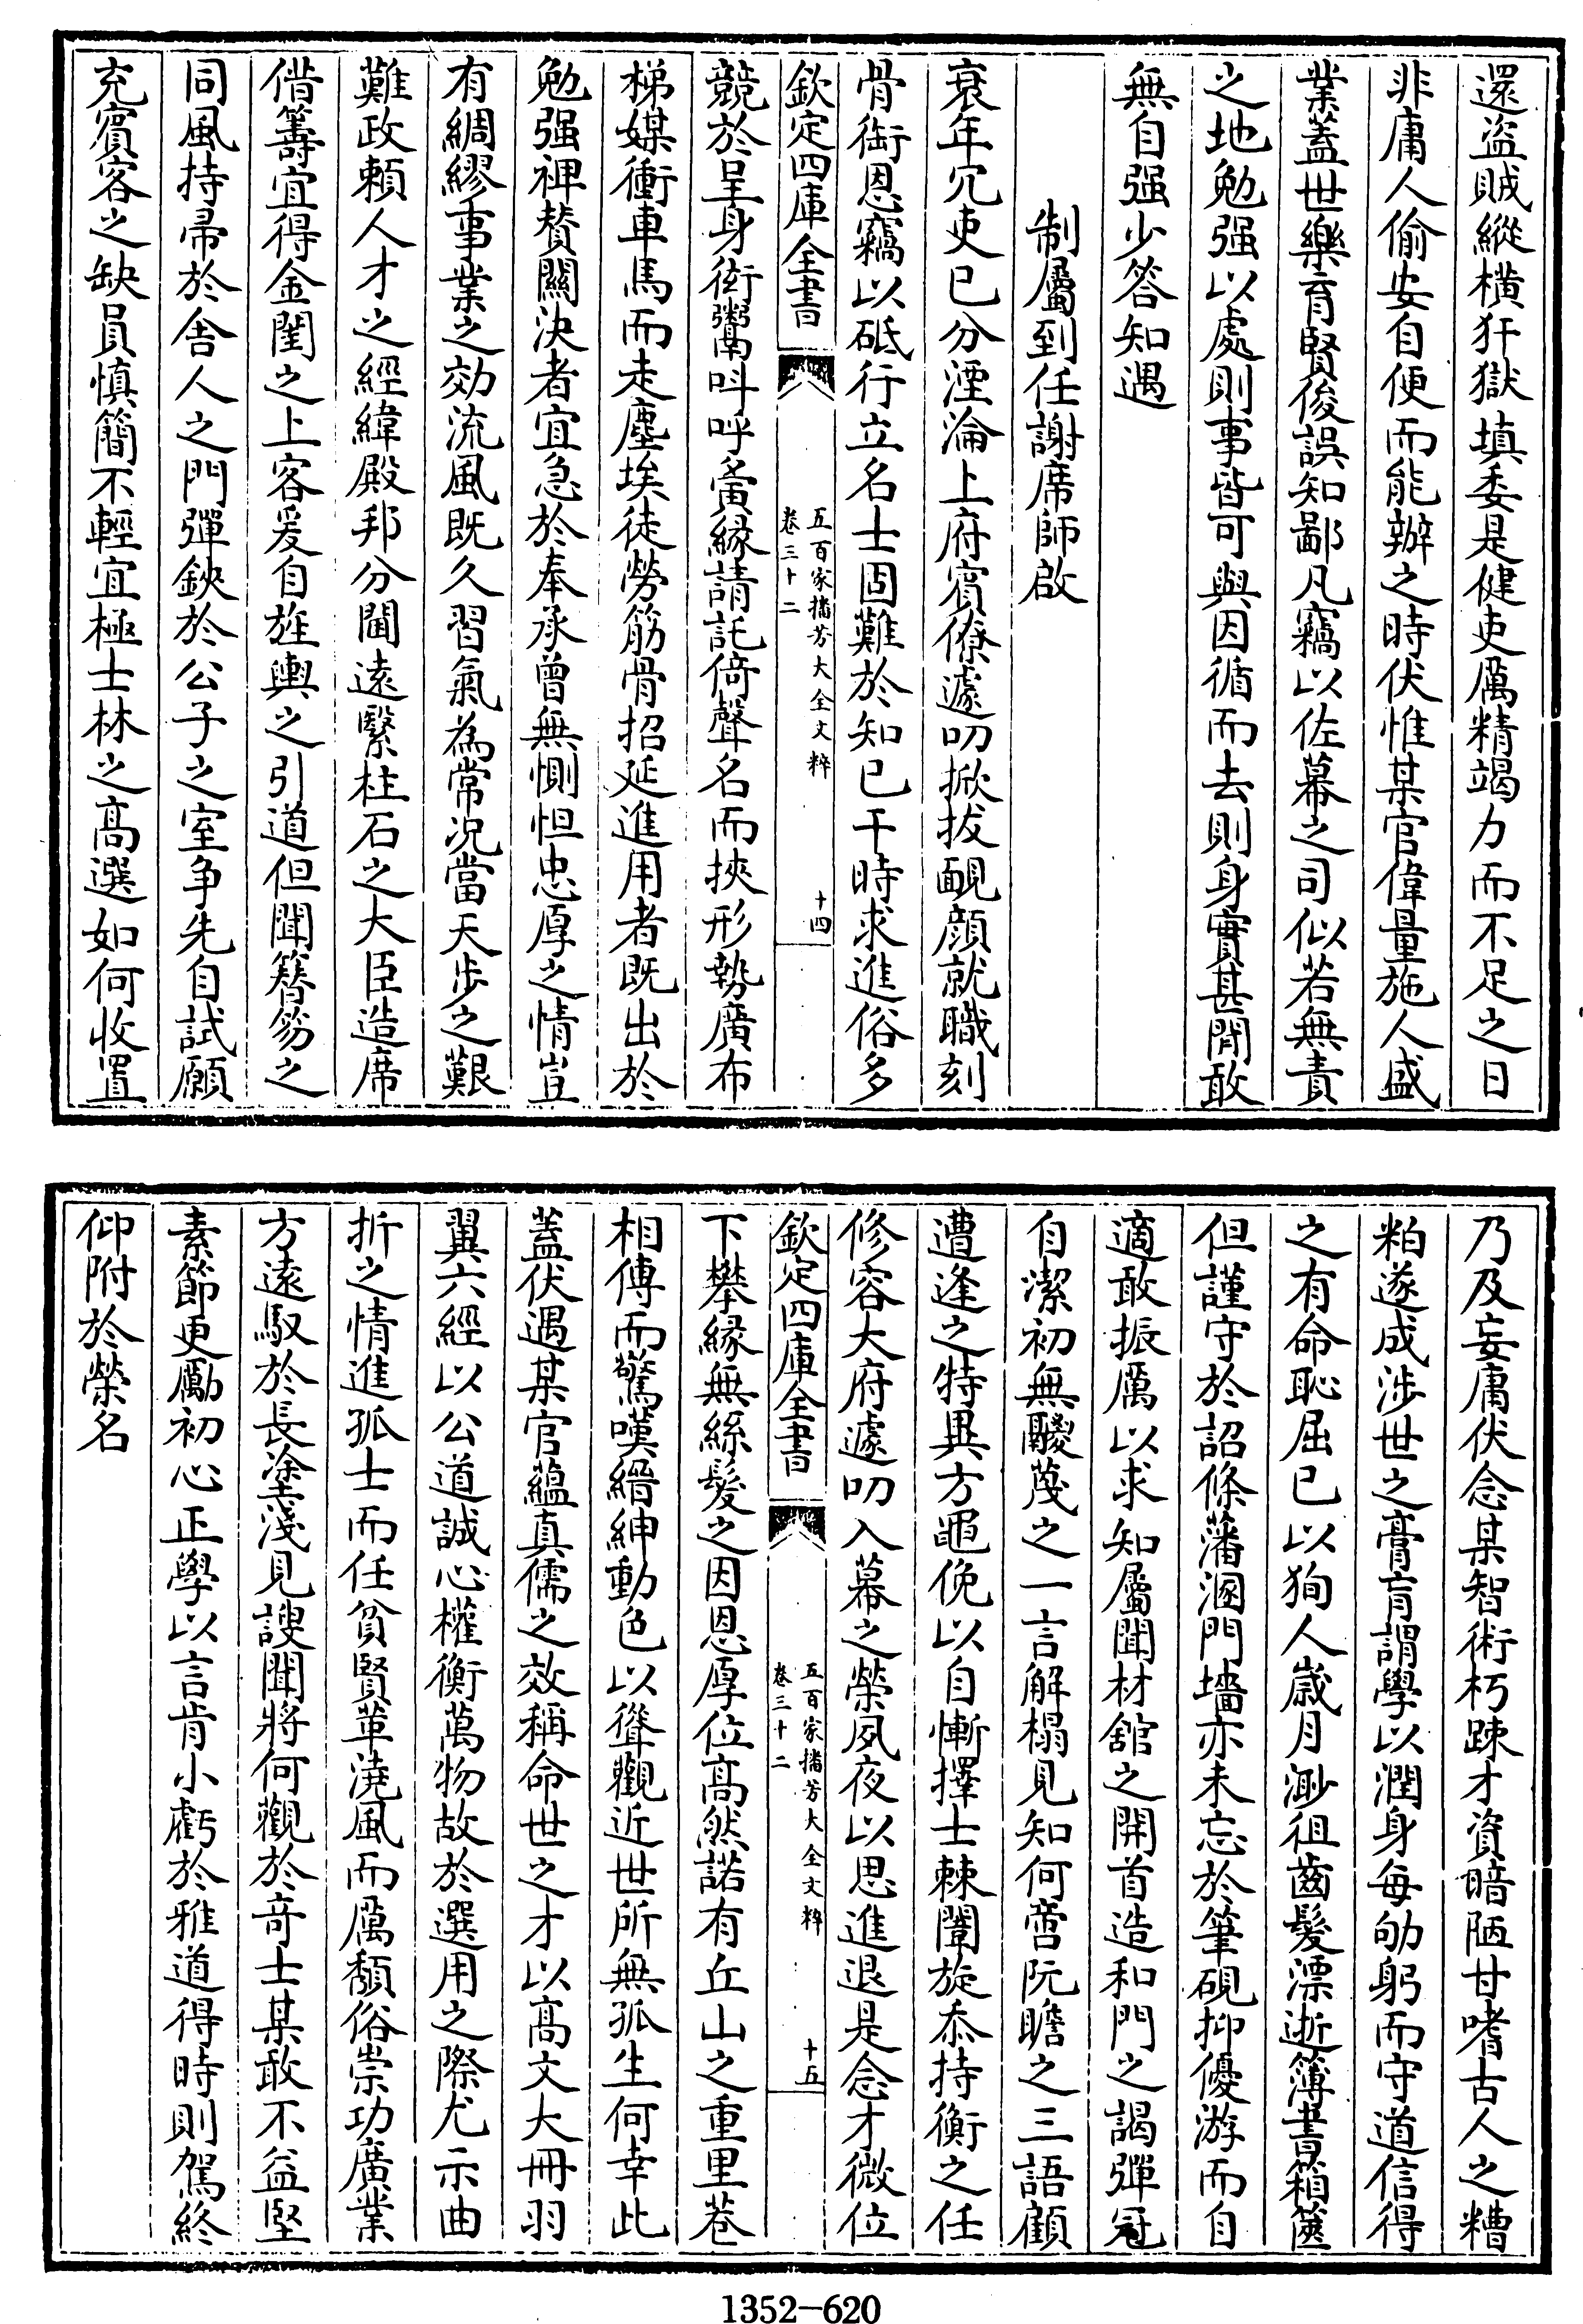 還盜賊縱横犴獄填委是健吏厲精竭力而不足之日
非庸人偷安自便而能辦之時伏惟某官偉量施人盛
業蓋世樂育賢俊誤知鄙凡竊以佐幕之司似若無責
之地勉强以處則事皆可與因循而去則身實甚閒敢
無自强少答知遇
制屬到任謝席師啟
衰年冗吏已分湮淪上府賓僚遽叨掀拔靦顔就職刻
骨銜恩竊以砥行立名士固難於知已干時求進俗多
欽定四庫全書
五百家播芳大全文粹
卷三十二
十四
競於呈身衒鬻呌呼夤緣請託倚聲名而挾形勢廣布
梯媒衝車馬而走塵埃徒勞筋骨招延進用者既出於
勉强裨賛關決者宜急於奉承曾無惻怛忠厚之情豈
有綢繆事業之効流風既久習氣為常况當天步之艱
難政頼人才之經緯殿邦分閫遠繄柱石之大臣造席
借籌宜得金閨之上客爰自旌輿之引道但聞簮笏之
同風持帚於舍人之門彈鋏於公子之室争先自試願
充賓客之缺員慎簡不輕宜極士林之髙選如何收置
乃及妄庸伏念某智術朽踈才資暗陋甘嗜古人之糟
粕遂成涉世之膏肓謂學以潤身每劬躬而守道信得
之有命恥屈已以狥人歲月渺徂齒髮漂逝簿書箱篋
但謹守於詔條藩溷門墻亦未忘於筆硯抑優游而自
適敢振厲以求知屬聞材舘之開首造和門之謁彈冠
自潔初無鬷蔑之一言解榻見知何啻阮瞻之三語顧
遭逢之特異方黽俛以自慚擇士棘闈旋忝持衡之任
修容大府遽叨入幕之榮夙夜以思進退是念才微位
欽定四庫全書
五百家播芳大全文粹
卷三十二
十五
下攀緣無絲髮之因恩厚位髙然諾有丘山之重里巷
相傳而驚嘆縉紳動色以聳觀近世所無孤生何幸此
蓋伏遇某官蘊真儒之效稱命世之才以髙文大冊羽
翼六經以公道誠心權衡萬物故於選用之際尤示曲
折之情進孤士而任貧賢革澆風而厲頽俗崇功廣業
方遠馭於長塗淺見謏聞將何觀於竒士某敢不益堅
素節更勵初心正學以言肯小虧於雅道得時則駕終
仰附於榮名
1352-620